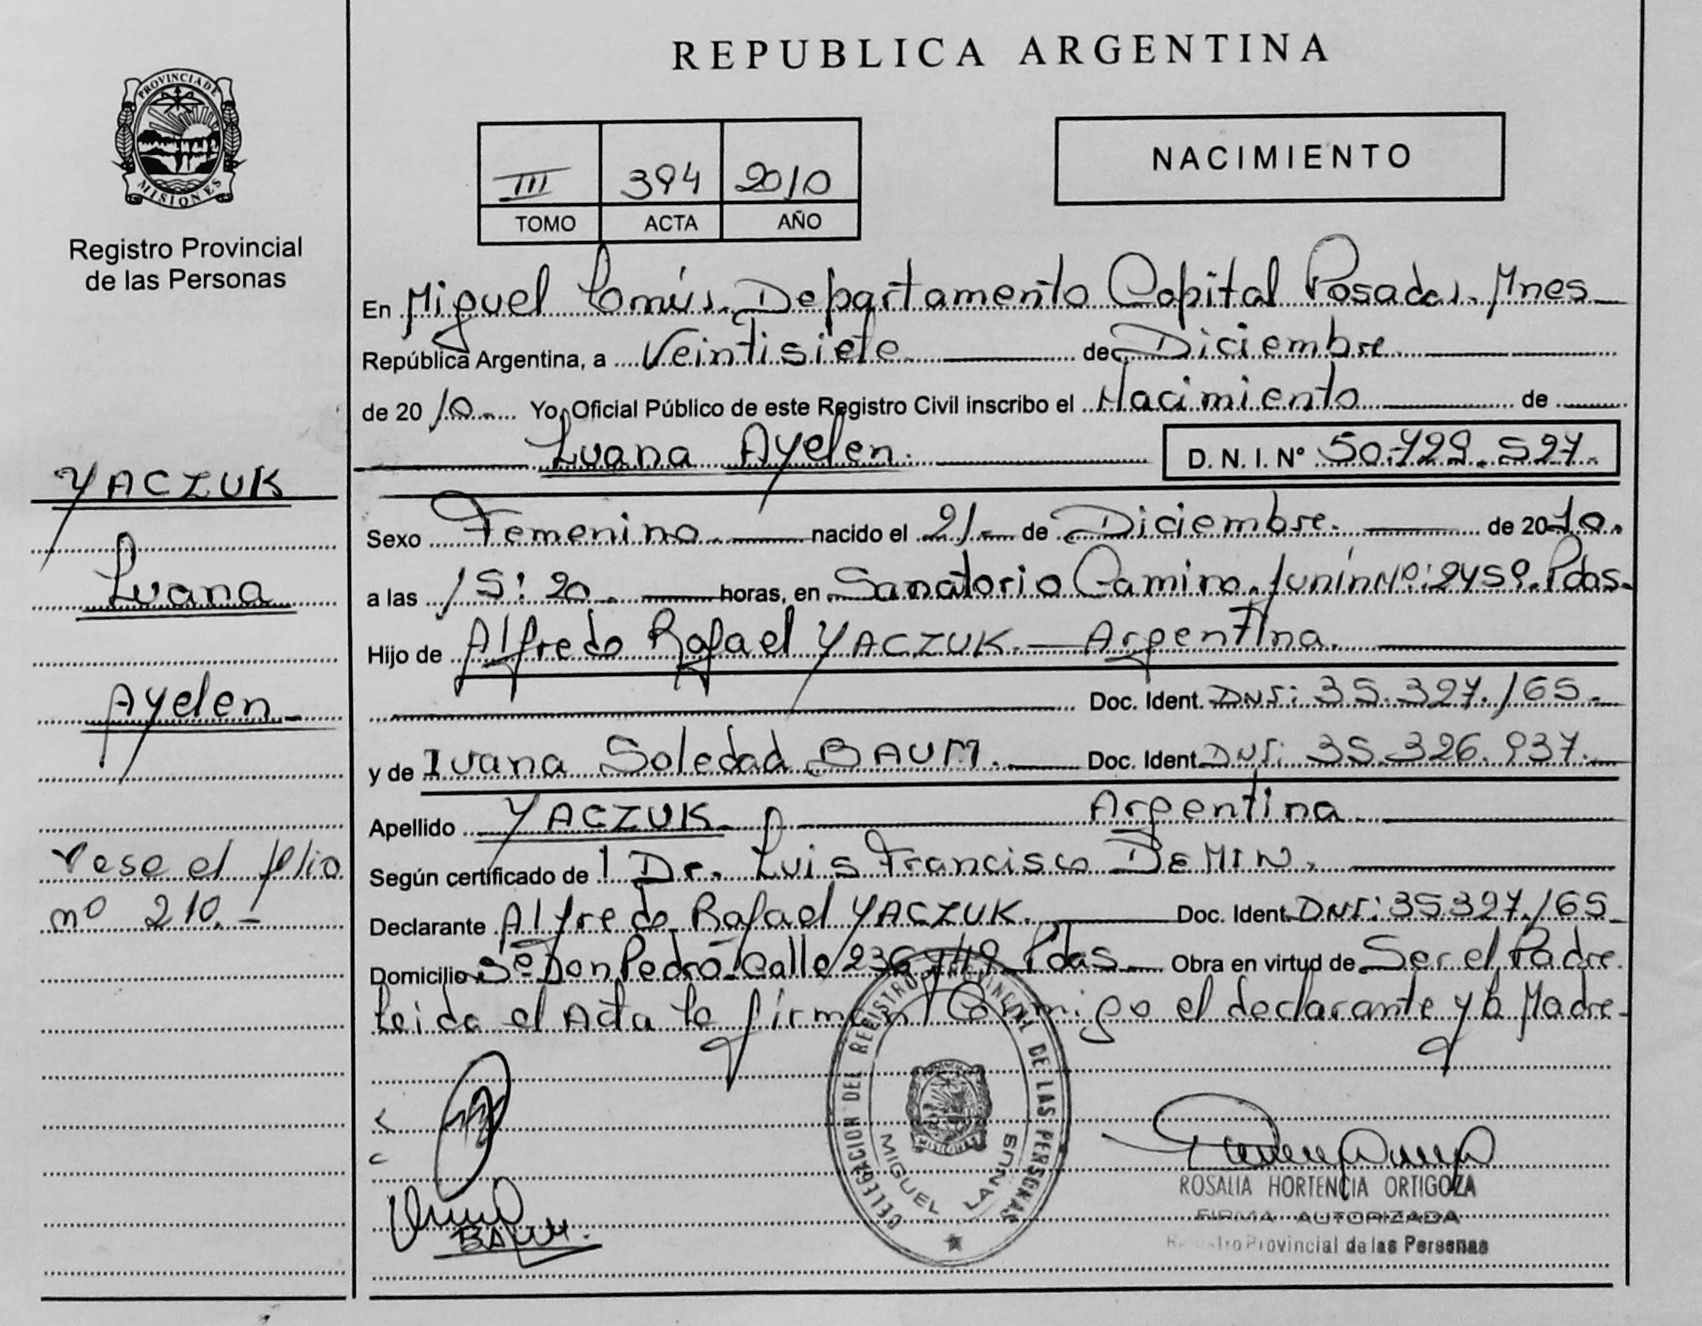 REPUBLICA ARGENTINA
PROVINCIA DE MISIONES
Registro Provincial
de las Personas
III 394 2010
TOMO ACTA AÑO
NACIMIENTO
En Miguel Lanús. Departamento Capital Posadas. Mnes
República Argentina, a Veintisiete de Diciembre
de 2010. Yo, Oficial Público de este Registro Civil inscribo el Nacimiento de
Luana Ayelen. D. N. I. Nº 50.729.527.
Sexo Femenino. nacido el 21. de Diciembre. de 2010.
a las 15:20 horas, en Sanatorio Camino. Junín Nº: 2459. Pdas.
Hijo de Alfredo Rafael YACZUK. Argentina.
Doc. Ident. DNI: 35.327.165.
y de Ivana Soledad BAUM. Doc. Ident. DNI: 35.326.937.
Apellido YACZUK Argentina
Según certificado de l Dr. Luis Francisco DEMIN.
Declarante Alfredo Rafael YACZUK. Doc. Ident. DNI: 35327.165
Domicilio Don Pedro. Calle Pdas. Obra en virtud de Ser el Padre.
Leida el Acta la firman Conmigo el declarante y la Madre.
YACZUK
Luana
Ayelen
Vese el folio
nº 210.-
DELEGACION DEL REGISTRO PROVINCIAL DE LAS PERSONAS
MIGUEL LANUS
BAUM.
ROSALIA HORTENCIA ORTIGOZA
FIRMA AUTORIZADA
Registro Provincial de las Personas